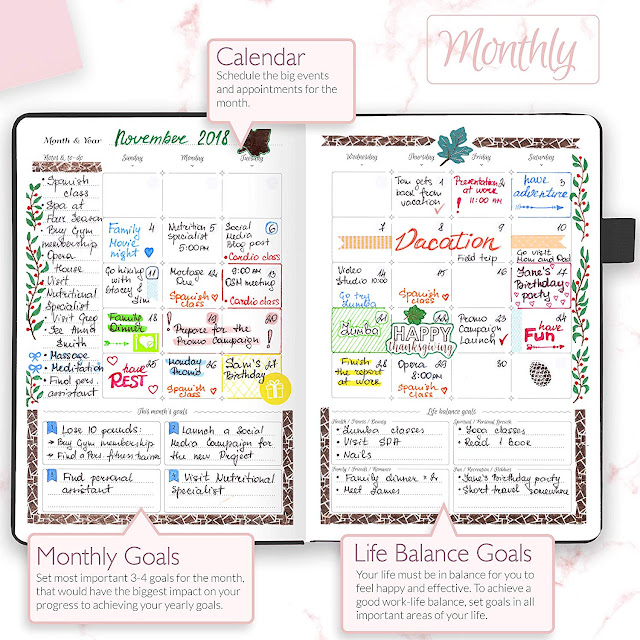 Calendar
Schedule the big events
and appointments for the
month.
Monthly
Month & Year November 2018
Notes & to-do
Sunday
Monday
Tuesday
Wednesday
Thursday
Friday
Saturday
• Spanish
class
• Spa at
Four Season
• Buy Gym
membership
• Opera
House
• Visit
Nutritional
Specialist
• Visit Greg
• See Anna
Smith
• Massage
• Meditation
• Find pers.
assistant
Tom gets 1
back from
vacation
Presentation 2
at work
11:00 AM
have 3
adventure
Family 4
Movie
night
Nutrition 5
Specialist
5:00 PM
Social 6
Media
Blog post
• Cardio class
7
8
9
10
Vacation
Field trip
Go visit
Mom and Dad
Go hiking 11
with
Stacey &
Jim
Mortgage 12
One:
Spanish class
9:00 AM 13
OSM meeting
• Cardio class
Video 14
Studio 10:00
Go try
Zumba
15
Spanish class
16
Jane's 17
Birthday
party
Family 18
Dinner
19
20
! Prepare for the !
Promo Campaign
21
Zumba
22
HAPPY
thanksgiving
Promo 23
Campaign
Launch
24
have
Fun
25
have
REST
Holiday 26
Promo
Spanish class
Sam's 27
Birthday
Finish 28
the report
at work
Opera 29
8:00 PM
Spanish class
This month's goals
1 Lose 10 pounds:
→ Buy Gym membership
→ Find a Pers. fitness trainer
2 Launch a Social
Media Campaign for
the new Project
3 Find personal
assistant
4 Visit Nutritional
Specialist
Life balance goals
Health / Fitness / Beauty
• Zumba classes
• Visit SPA
• Nails
Spiritual / Personal Growth
• Yoga classes
• Read 1 Book
Family / Friends / Romance
• Family dinner
• Meet James
Fun / Recreation / Hobbies
• Jane's Birthday party
• Short travel somewhere
Monthly Goals
Set most important 3-4 goals for the month,
that would have the biggest impact on your
progress to achieving your yearly goals.
Life Balance Goals
Your life must be in balance for you to
feel happy and effective. To achieve a
good work-life balance, set goals in all
important areas of your life.